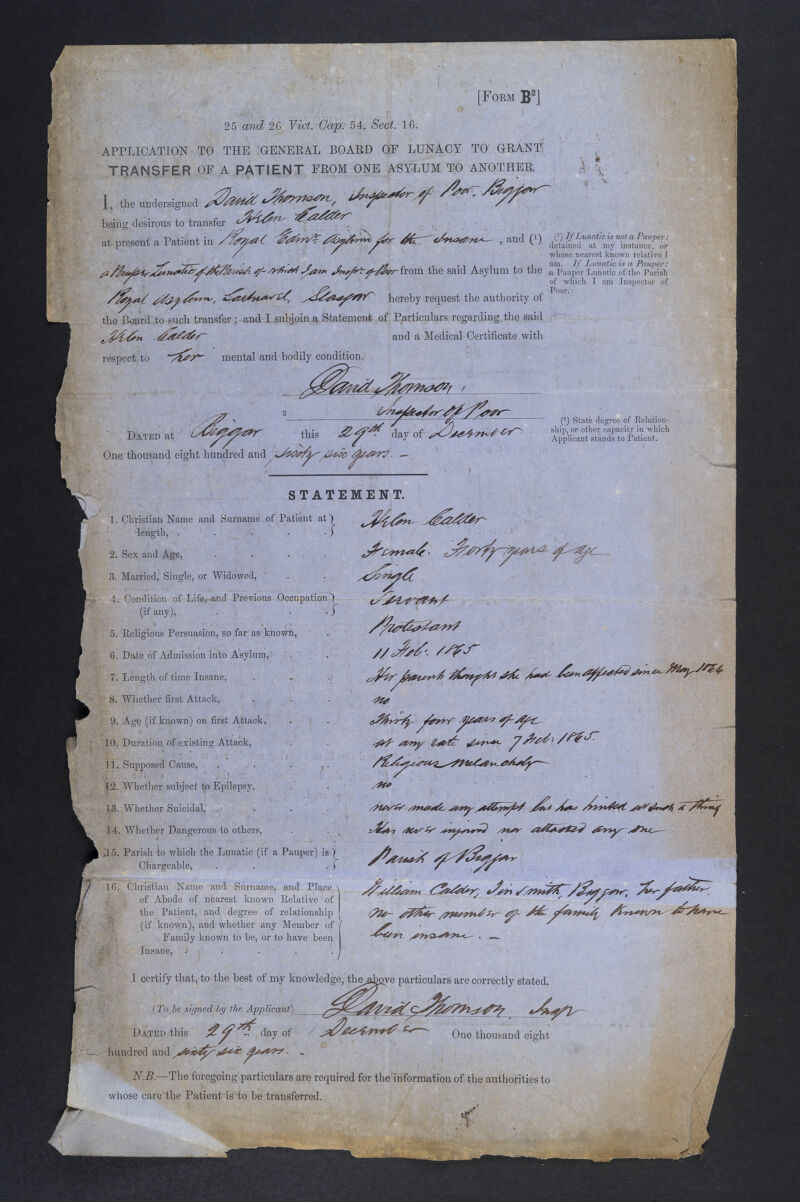 [FORM B²]
25 and 26 Vict. Cap. 54, Sect. 16.
APPLICATION TO THE GENERAL BOARD OF LUNACY TO GRANT
TRANSFER OF A PATIENT FROM ONE ASYLUM TO ANOTHER.
I, the undersigned David Thomson, Inspector of Poor, Biggar
being desirous to transfer Helen Calder
at present a Patient in Royal Edinr. Asylum for the Insane, and (¹)
a Pauper Lunatic of the Parish of which I am Inspr. of Poor from the said Asylum to the
Royal Asylum, Gartnavel, Glasgow hereby request the authority of
the Board to such transfer; and I subjoin a Statement of Particulars regarding the said
Helen Calder and a Medical Certificate with
respect to her mental and bodily condition.
(¹) If Lunatic is not a Pauper:
detained at my instance, or
whose nearest known relative I
am. If Lunatic is a Pauper:
a Pauper Lunatic of the Parish
of which I am Inspector of
Poor.
David Thomson,
² Inspector of Poor
DATED at Biggar this 29th day of December
One thousand eight hundred and sixty six years. –
(²) State degree of Relation-
ship, or other capacity in which
Applicant stands to Patient.
STATEMENT.
1. Christian Name and Surname of Patient at
length, . . . . Helen Calder
2. Sex and Age, . . . . Female. Forty years of age
3. Married, Single, or Widowed, . . Single
4. Condition of Life, and Previous Occupation
(if any), . . . . Servant
5. Religious Persuasion, so far as known, . Protestant
6. Date of Admission into Asylum, . . 11 Feb: 1865
7. Length of time Insane, . . . Her parents thought she had been affected since May 1864
8. Whether first Attack, . . . no
9. Age (if known) on first Attack, . . Thirty four years of age
10. Duration of existing Attack, . . at any rate since 7 Feb: 1865.
11. Supposed Cause, . . . . Religious melancholy
12. Whether subject to Epilepsy, . . no
13. Whether Suicidal, . . . . never made any attempt but has hinted at such a thing
14. Whether Dangerous to others, . . Has never injured nor attacked any one
15. Parish to which the Lunatic (if a Pauper) is
Chargeable, . . . . Parish of Biggar
16. Christian Name and Surname, and Place
of Abode of nearest known Relative of
the Patient, and degree of relationship
(if known), and whether any Member of
Family known to be, or to have been
Insane, . . . . .
William Calder, Tinsmith, Biggar, her father.
no other member of the family known to have
been insane. –
I certify that, to the best of my knowledge, the above particulars are correctly stated.
(To be signed by the Applicant) David Thomson, Inspr
DATED this 29th day of December One thousand eight
hundred and sixty six years. –
N.B.—The foregoing particulars are required for the information of the authorities to
whose care the Patient is to be transferred.